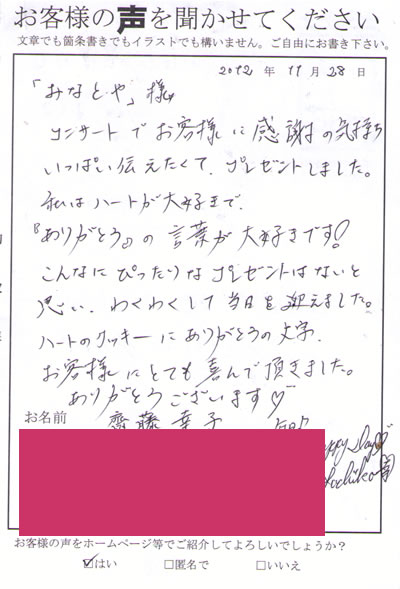 お客様の声を聞かせてください
文章でも箇条書きでもイラストでも構いません。ご自由にお書き下さい。
2012 年 11 月 28 日
「みなとや」様
コンサートでお客様に感謝の気持ち
いっぱい伝えたくて、プレゼントしました。
私はハートが大好きで、
『ありがとう』の言葉が大好きです!
こんなにぴったりなプレゼントはないと
思い、わくわくして当日を迎えました。
ハートのクッキーにありがとうの文字、
お客様にとても喜んで頂きました。
ありがとうございます♡
お名前 齋藤 幸子
お客様の声をホームページ等でご紹介してよろしいでしょうか?
☑はい □匿名で □いいえ